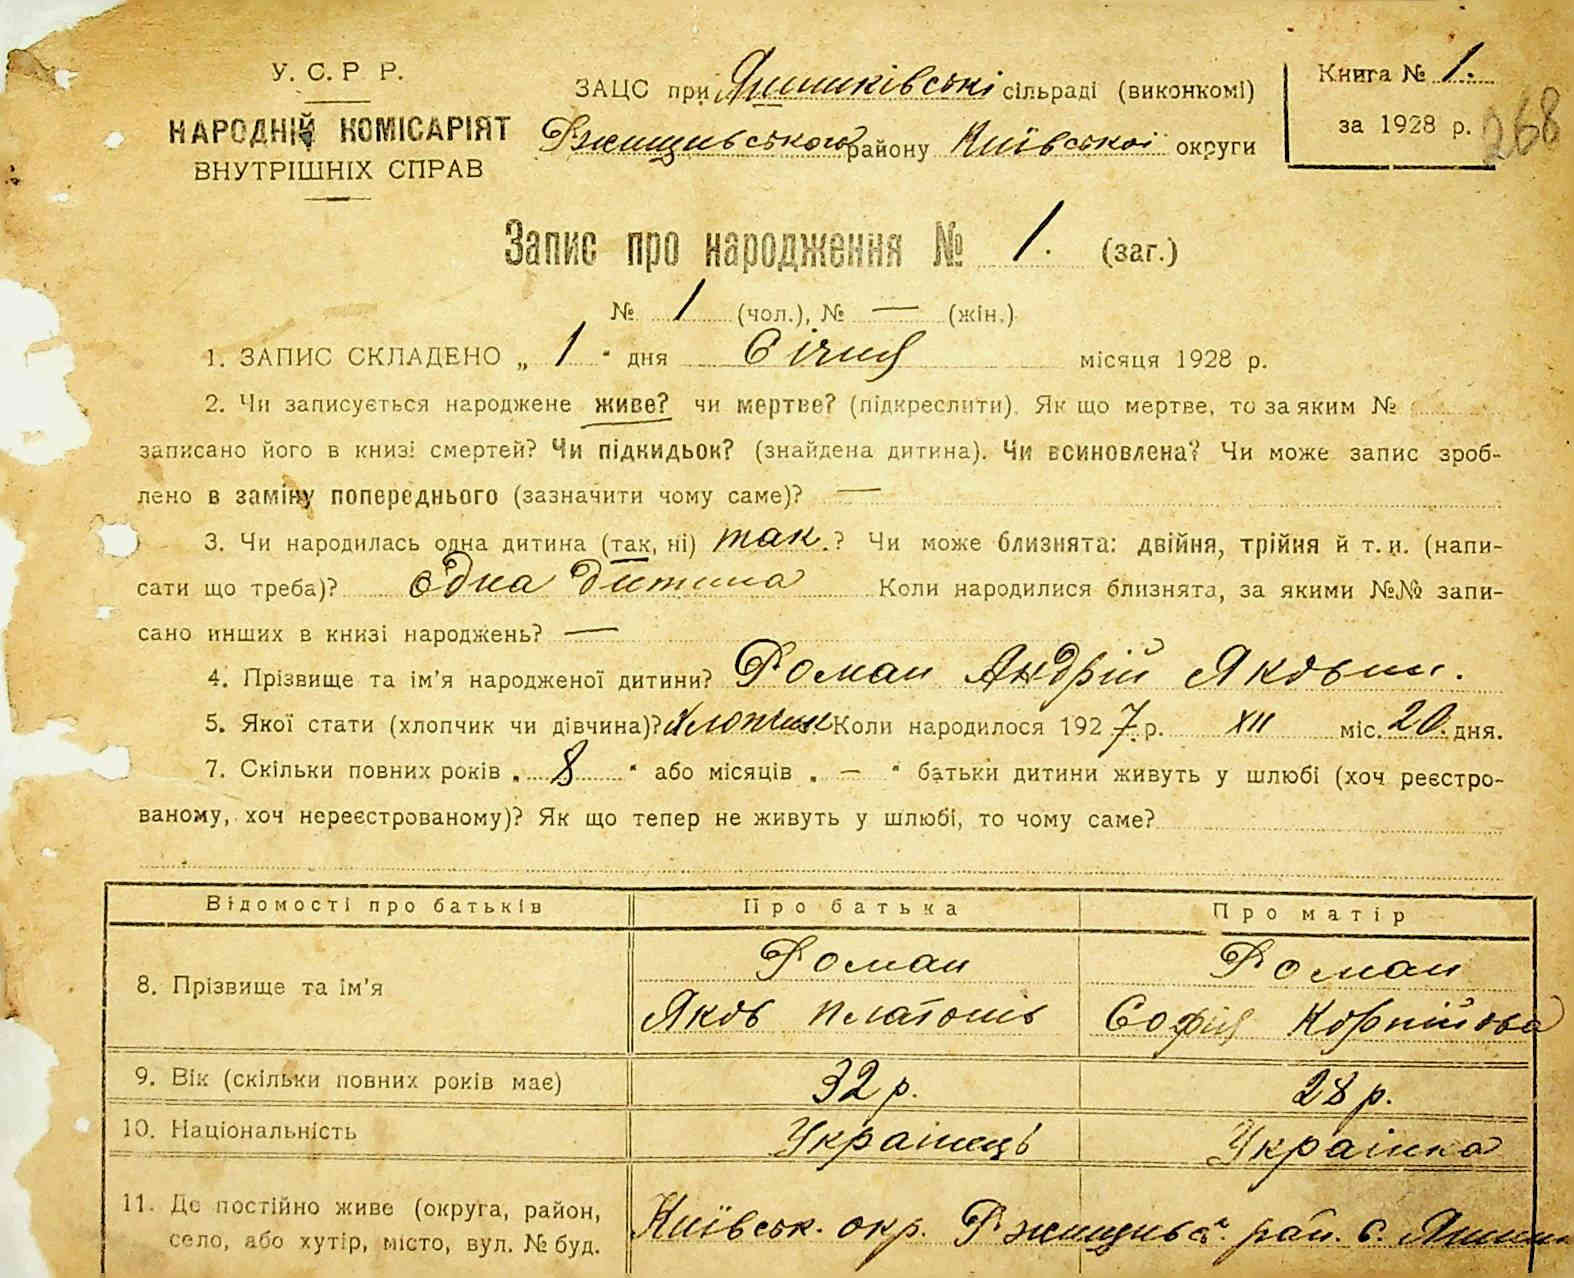 У. С. Р Р.
НАРОДНІЙ КОМІСАРІЯТ
ВНУТРІШНІХ СПРАВ
ЗАЦС при сільраді (виконкомі)
Ржищивського району Київської округи
Книга № 1.
за 1928 р.
268
Запис про народження № 1. (заг.)
№ 1 (чол.), № — (жін.)
1. ЗАПИС СКЛАДЕНО „ 1 " дня Січня місяця 1928 р.
2. Чи записується народжене живе? чи мертве? (підкреслити). Як що мертве, то за яким №
записано його в книзі смертей? Чи підкидьок? (знайдена дитина). Чи всиновлена? Чи може запис зроб-
лено в заміну попереднього (зазначити чому саме)? —
3. Чи народилась одна дитина (так, ні) так.? Чи може близнята: двійня, трійня й т. и. (напи-
сати що треба)? Одна дитина Коли народилися близнята, за якими №№ запи-
сано инших в книзі народжень? —
4. Прізвище та ім'я народженої дитини? Роман Андрій Яковин.
5. Якої стати (хлопчик чи дівчина)? Хлопчик Коли народилося 1927 р. XII міс. 20. дня.
7. Скільки повних років „ 8 " або місяців „ — " батьки дитини живуть у шлюбі (хоч реєстро-
ваному, хоч нереєстрованому)? Як що тепер не живуть у шлюбі, то чому саме?
Відомості про батьків Про батька Про матір
8. Прізвище та ім'я Роман Яков Платонів Роман Софія Корнійова
9. Вік (скільки повних років має) 32 р. 28 р.
10. Національність Українець Українка
11. Де постійно живе (округа, район,
село, або хутір, місто, вул. № буд. Київськ. окр. Ржищивск. рай. с.